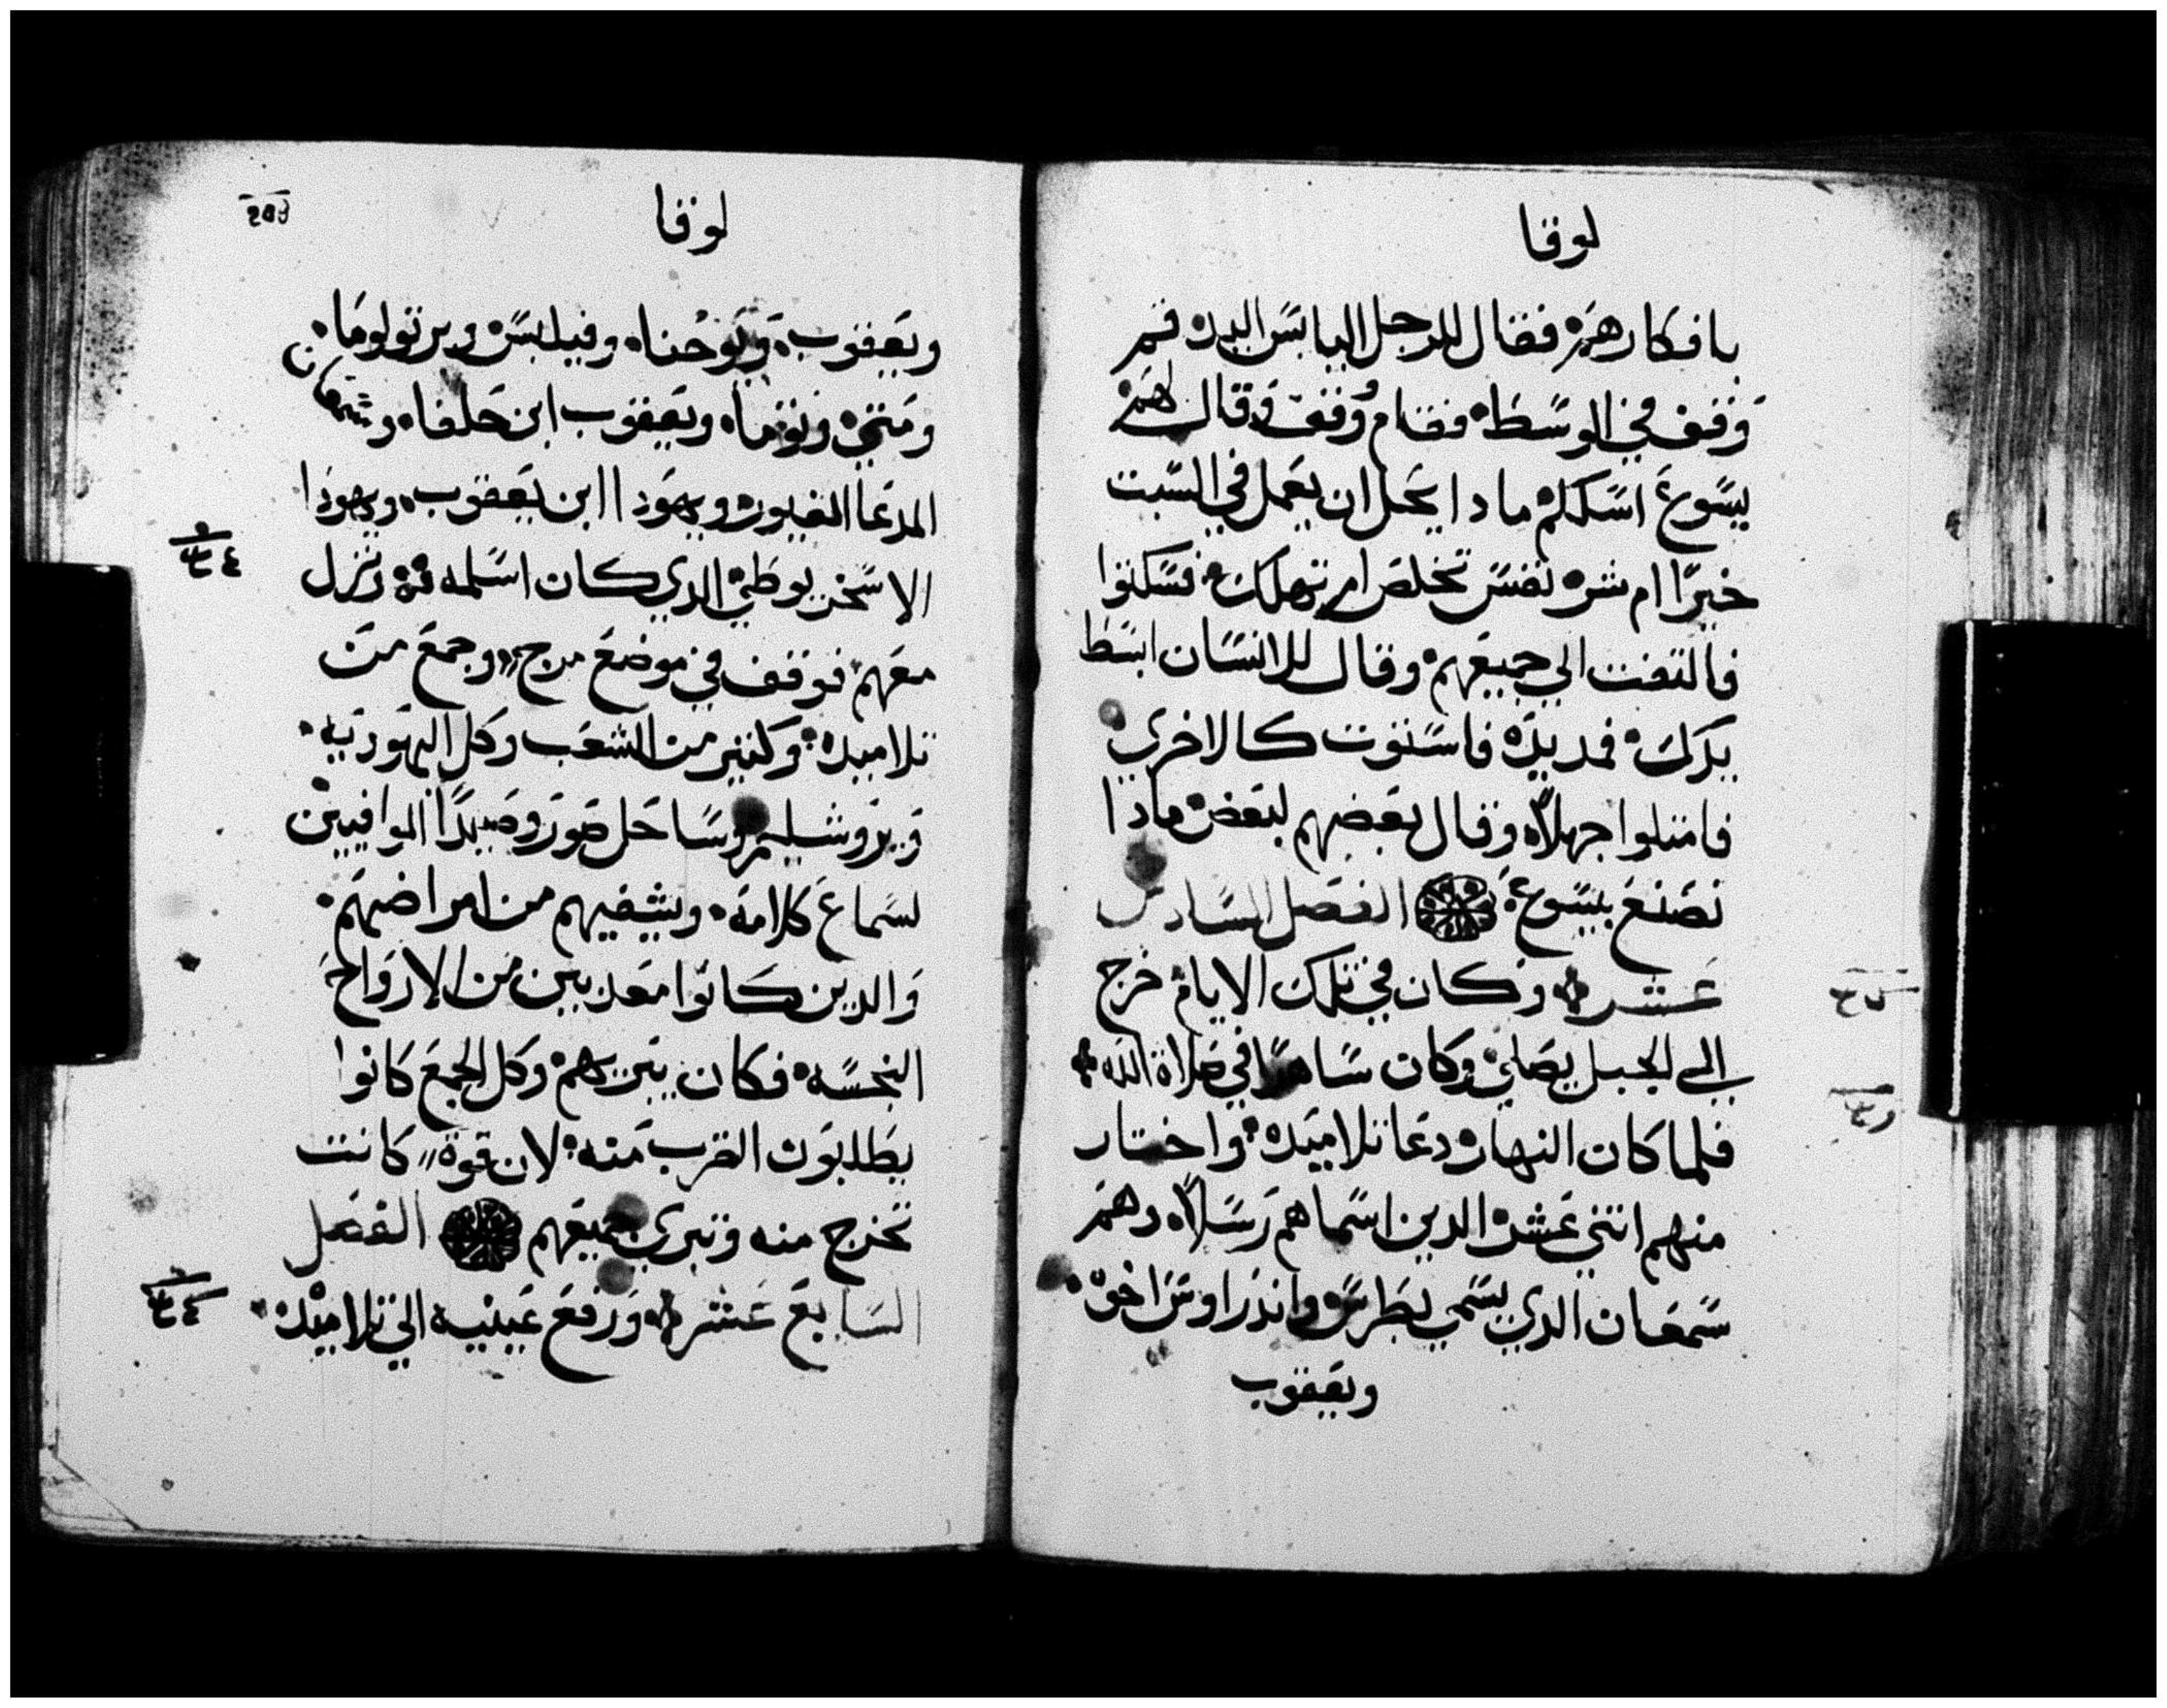 لوقا
بافكارهم فقال للرجل اليابس اليد قم
وقف في الوسط فقام وقف وقال لهم
يسوع اسلكم مادا يحل ان يعمل في السبت
خيرًا ام شر نفس تخلص ام تهلك فسكتوا
فالتفت الي جميعهم وقال للانسان ابسط
يدك فمد يده فاستوت كالاخري
فامتلوا جهلاً وقال بعضهم لبعض مادا
نصنع بيسوع الفصل السادس
عشر وكان في تلك الايام خرج
الي الجبل يصلي وكان ساهرًا في صلاة الله
فلما كان النهار دعا تلاميده واختار
منهم اتني عشر الدين اسماهم رسلاً وهم
سمعان الدي يسمي بطرس واندراوس اخوه
ويعقوب
لوقا
ويعقوب ويوحنا وفيلبس وبرتولوما
ومتي وتوما ويعقوب ابن حلفا وشمعان
المدعا الغيور ويهودا ابن يعقوب ويهودا
الاسخريوطي الدي كان اسلمه ونزل
معهم فوقف في موضع مرج وجمع من
تلاميده وكتير من الشعب وكل اليهودية
ويروشليم وساحل صور وصيدا الموافيين
لسماع كلامه ويشفيهم من امراضهم
والدين كانوا معدبين من الارواح
النجسه فكان يبريهم وكل الجمع كانوا
يطلبون القرب منه لان قوة كانت
تخرج منه وتبري جميعهم الفصل
السابع عشر ورفع عينيه الي تلاميده